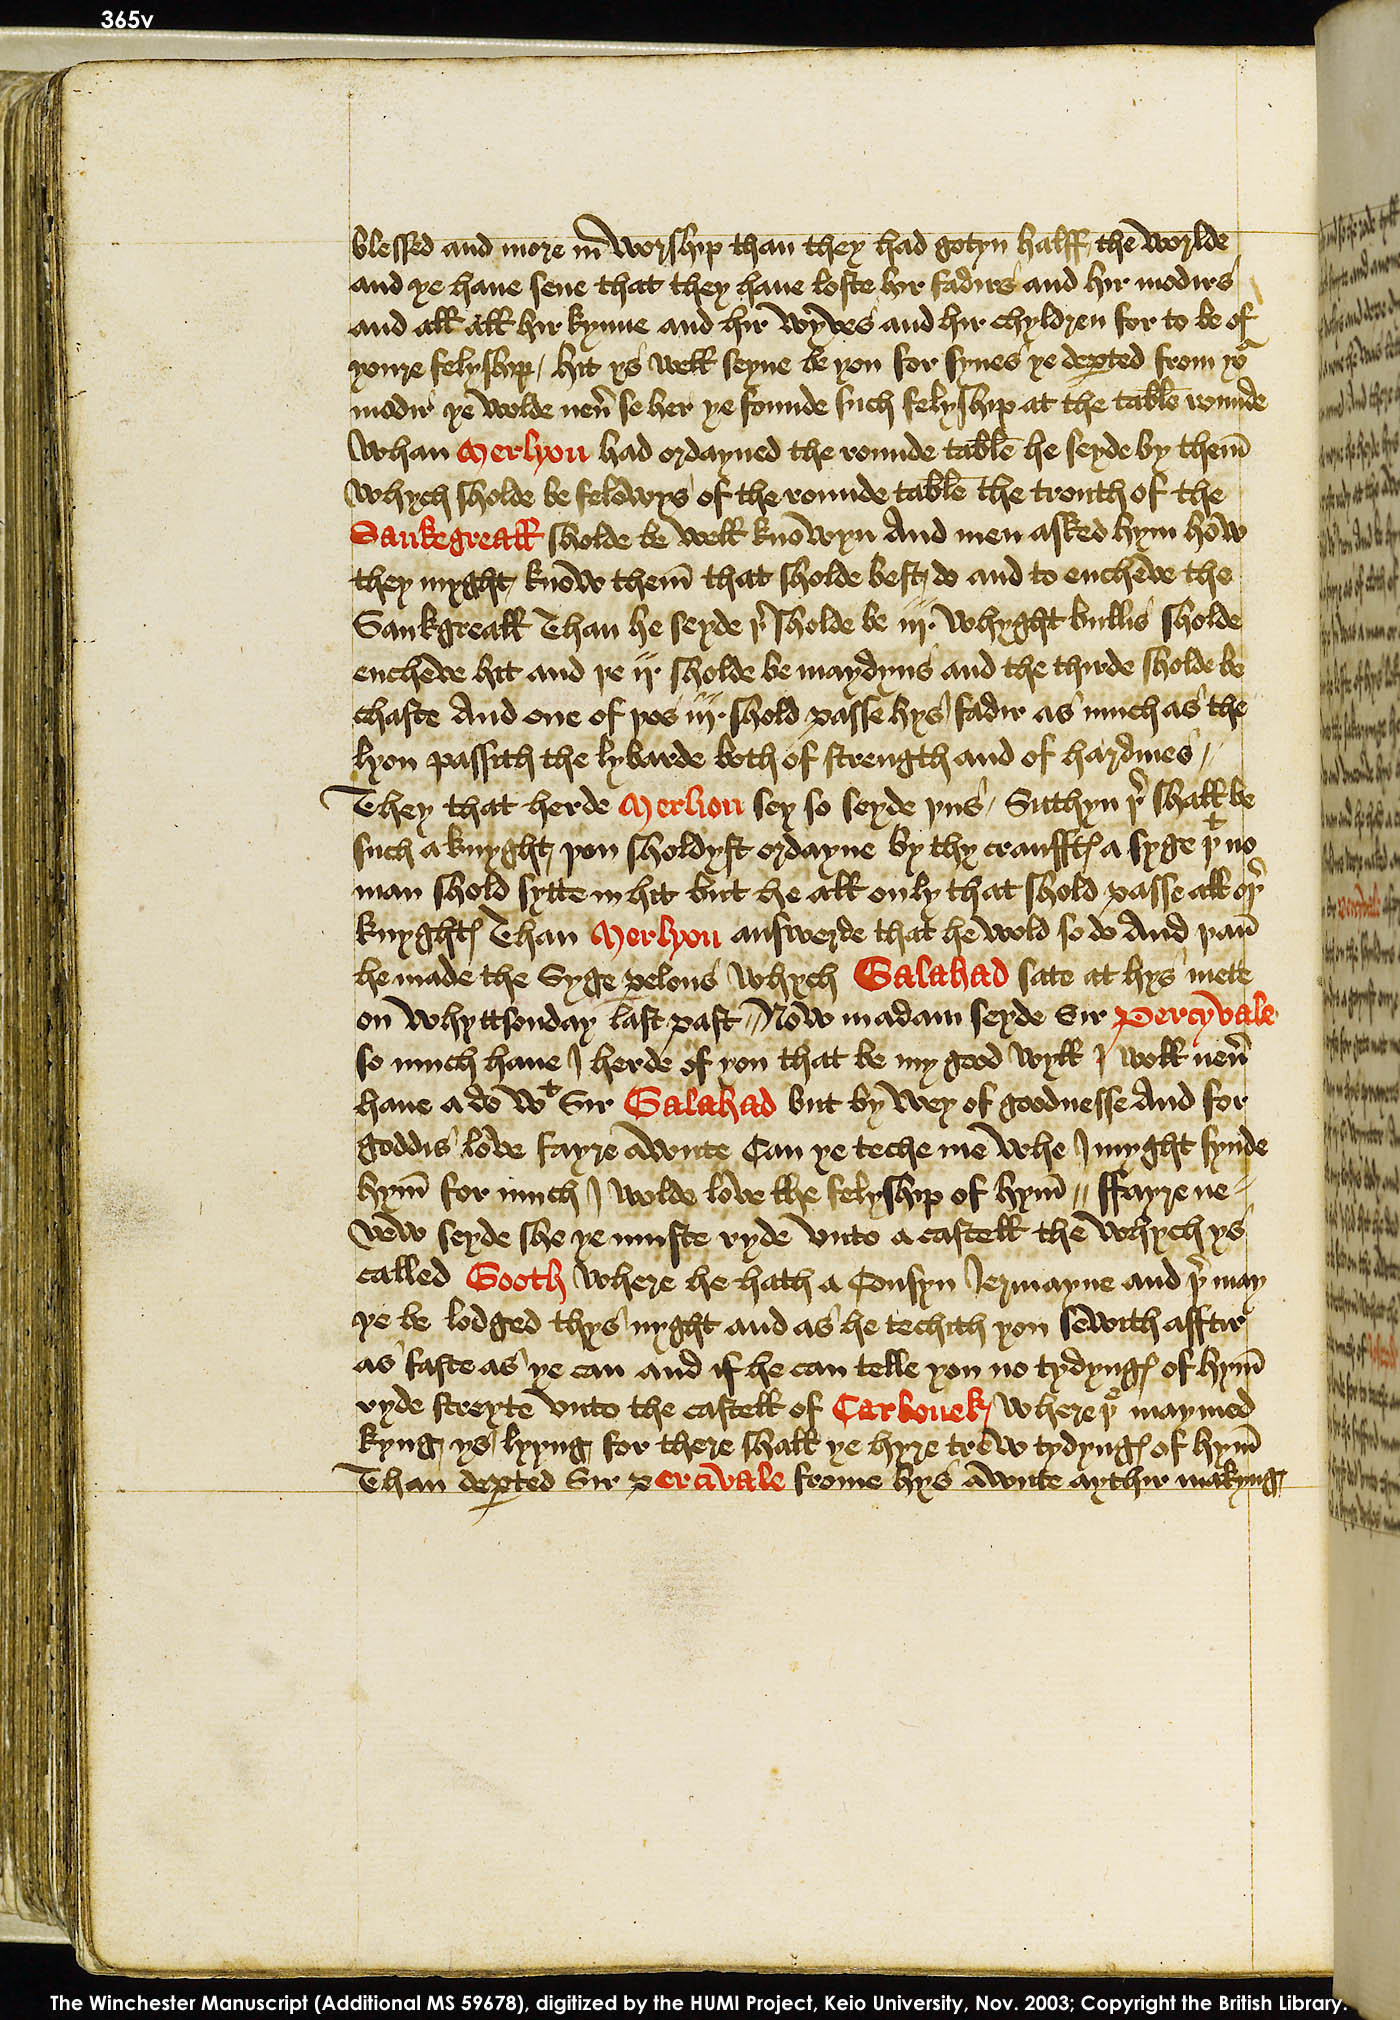 365v
blessed and more in worship than they had gotyn halff the worlde
and ye haue sene that they haue loste hir fadirs and hir modirs
and all all hir kynne and hir wyves and hir chyldren for to be of
youre felyship / hit ys well seyne be you for synes ye deꝑted from yoͬ
modir ye wolde neuꝰ se her ye founde such felyship at the table rounde
Whan Merlyon had ordayned the rounde table he seyde by them̄
whych sholde be felowys of the rounde table the trouth of the
Sankegreall sholde be well knowyn And men asked hym how
they myght know them̄ that sholde best do and to encheve the
Sankgreall Than he seyde þͬ sholde be iij. whyght bullis sholde
encheve hit and þe ij. sholde be maydyns and the thirde sholde be
chaste And one of þos iij. shold passe hys fadir as much as the
lyon passith the lybarde both of strength and of hardines /
They that herde Merlion sey so seyde þus / Sitthyn þͬ shall be
such a knyght þou sholdyst ordayne by thy craufftꝭ a syge þͭ no
man shold sytte in hit but he all only that shold passe all oþͬ
knyghtꝭ Than Merlyon answerde that he wold so do And þan̄
he made the Syge ꝑelous whych Galahad sate at hys mete
on whyttsonday last past // Now madam seyde Sir Percyvale
so much haue I herde of you that be my good wyll I woll neuꝰ
haue a do wͭ Sir Galahad but by wey of goodnesse And for
goddis love fayre awnte Can ye teche me whe I myght fynde
hym̄ for much I wolde love the felyship of hym̄ // ffayre ne-
vew seyde she ye muste ryde vnto a castell the whych ys
called Gooth where he hath a Cousyn Jermayne and þͬ may
ye be lodged thys nyght and as he techith you sewith afftir
as faste as ye can and if he can telle you no tydyngꝭ of hym̄
ryde streyte vnto the castell of Carbonek where þͤ maymed
kyng ys lyyng for there shall ye hyre trew tydyngꝭ of hym̄
Than deꝑted Sir Percivale frome hys awnte aythir makyng
The Winchester Manuscript (Additional MS 59678), digitized by the HUMI Project, Keio University, Nov. 2003; Copyright the British Library.